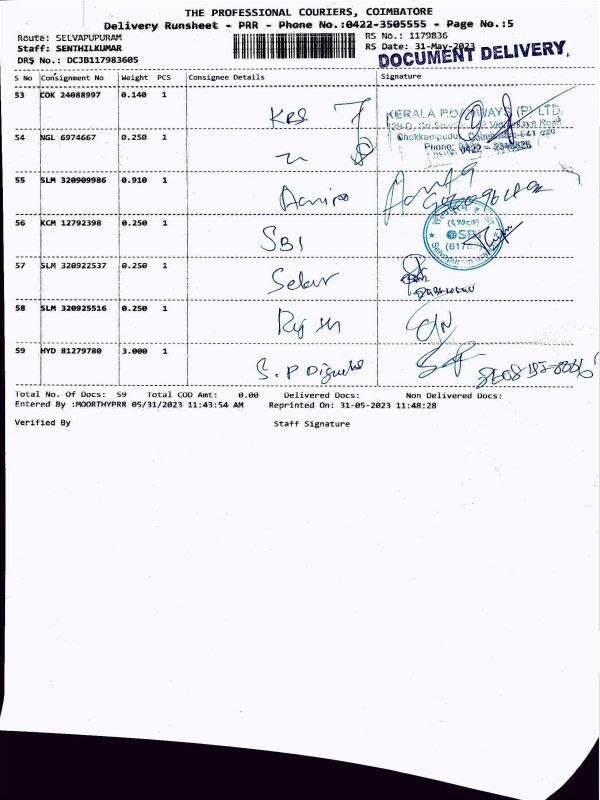 THE PROFESSIONAL COURIERS, COIMBATORE
Delivery Runsheet - PRR - Phone No.:0422-3505555 - Page No.:5
Route: SELVAPUPURAM RS No.: 1179836
Staff: SENTHILKUMAR RS Date: 31-May-2023
DRS No.: DCJB117983605 DOCUMENT DELIVERY.
S No Consignment No Weight PCS Consignee Details Signature
53 COK 24088997 0.140 1 KRS
KERALA ROADWAYS (P) LTD.
Chokkampudur,
Phone: 0422 -
54 NGL 6974667 0.250 1
55 SLM 320909986 0.910 1
56 KCM 12792398 0.250 1 SBI
57 SLM 320922537 0.250 1 Selvar
58 SLM 320925516 0.250 1
59 HYD 81279780 3.000 1 S.P
Total No. Of Docs: 59 Total COD Amt: 0.00 Delivered Docs: Non Delivered Docs:
Entered By :MOORTHYPRR 05/31/2023 11:43:54 AM Reprinted On: 31-05-2023 11:48:28
Verified By Staff Signature